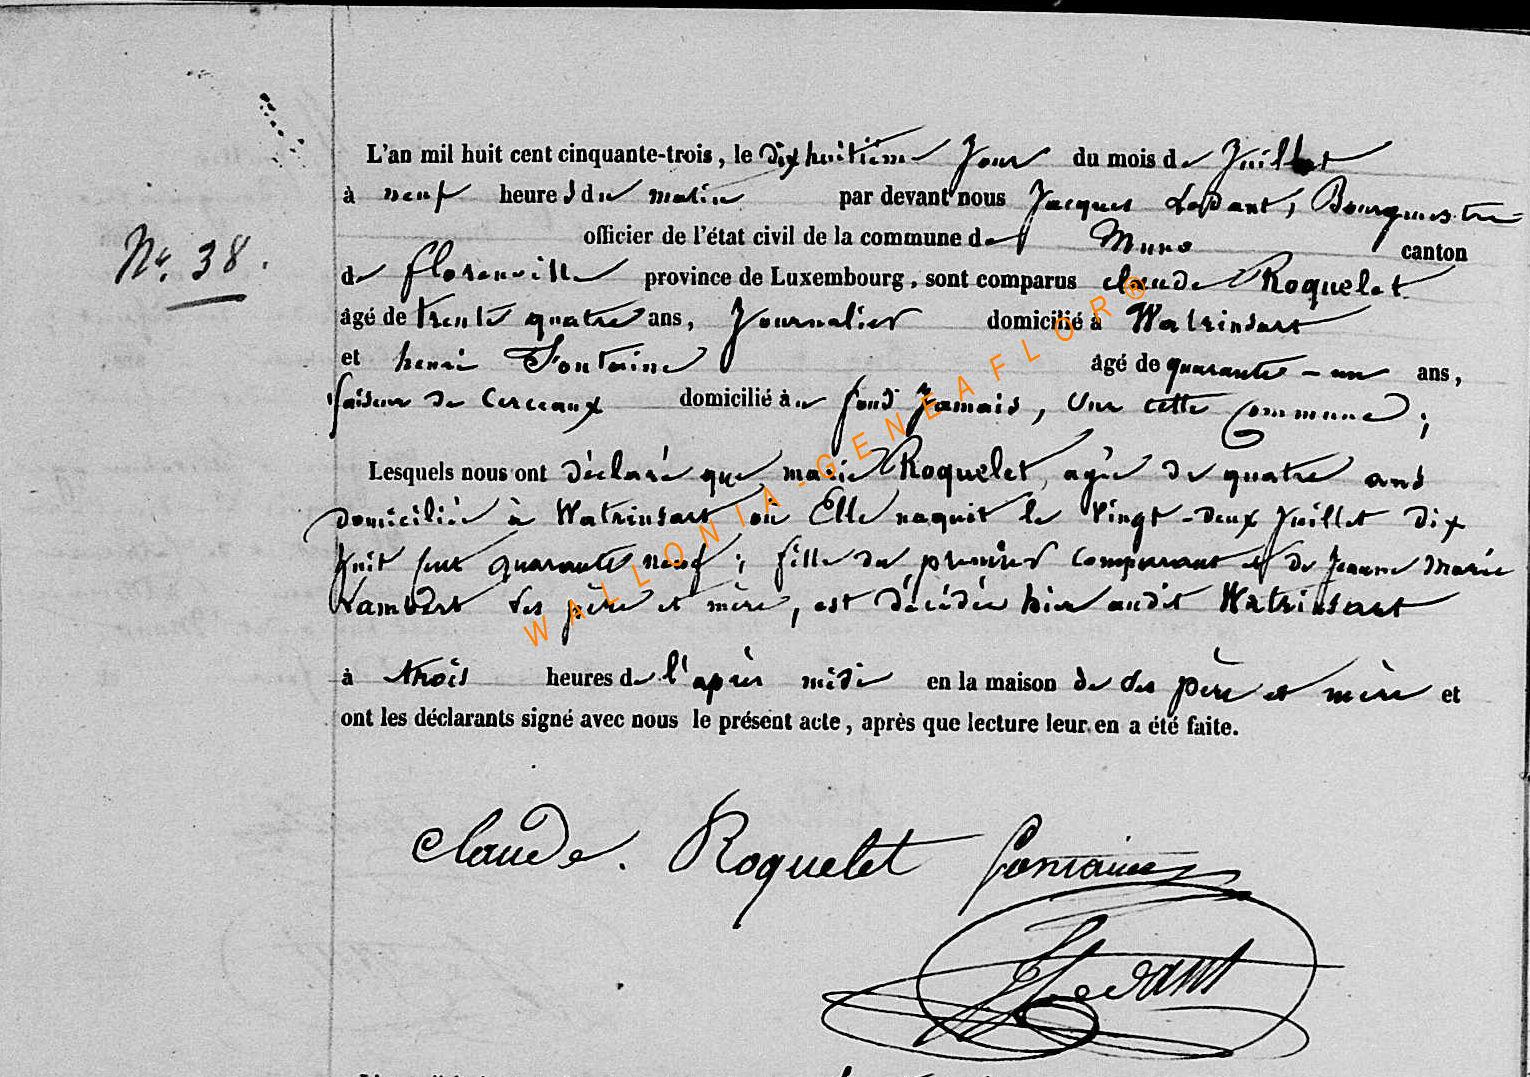 L'an mil huit cent cinquante-trois, le dix huitième Jour du mois de Juillet
à neuf heures du matin par devant nous Jacques Ledant, Bourgmestre
officier de l'état civil de la commune de Muno canton
Nº. 38.
de florenville province de Luxembourg, sont comparus claude Roquelet
âgé de trente quatre ans, Journalier domicilié à Watrinsart
et henri Fontaine âgé de quarante - un ans,
faiseur de Cerceaux domicilié à fond Jamais, Sur cette Commune;
Lesquels nous ont déclaré que marie Roquelet, agée de quatre ans
domiciliée à Watrinsart où Elle naquit le Vingt-deux Juillet dix
huit cent quarante neuf; fille du premier comparant et de Jeanne Marie
Lambert ses père et mère, est décédée hier audit Watrinsart
à trois heures de l'après midi en la maison de ses père et mère et
ont les déclarants signé avec nous le présent acte, après que lecture leur en a été faite.
WALLONIA-GENEAFLOR®
Claude. Roquelet Fontaine
Ledant